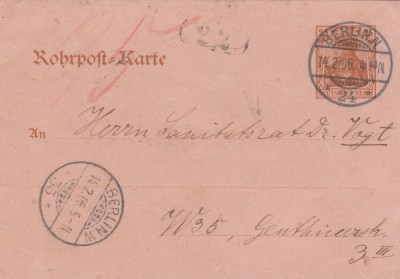 22
BERLIN.N
14.2.06. 4-5N
24
Rohrpost-Karte
An
Herrn Sanitätsrat Dr. Vogt
BERLIN W
14.2.06. 5-N.
35
W35, Genthinerstr.
3. III